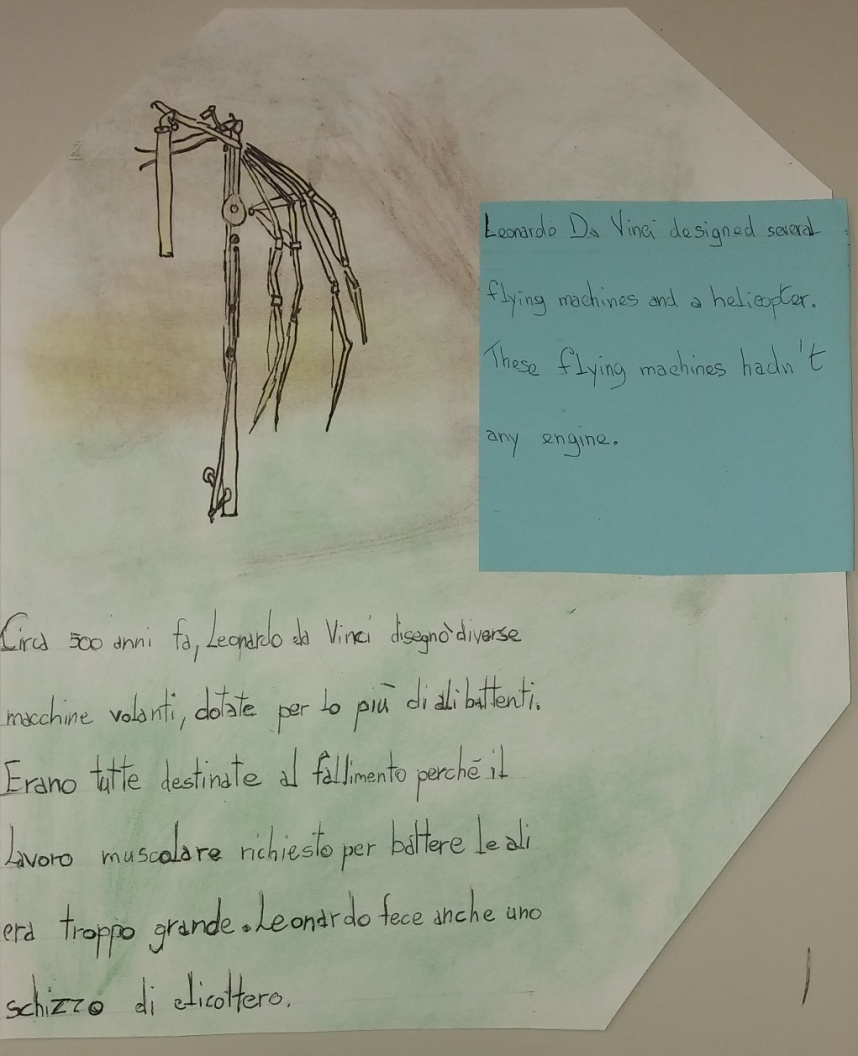 Leonardo Da Vinci designed several
flying machines and a helicopter.
These flying machines hadn't
any engine.
Circa 500 anni fa, Leonardo da Vinci disegnò diverse
macchine volanti, dotate per lo più di ali battenti.
Erano tutte destinate al fallimento perché il
lavoro muscolare richiesto per battere le ali
era troppo grande. Leonardo fece anche uno
schizzo di elicottero.